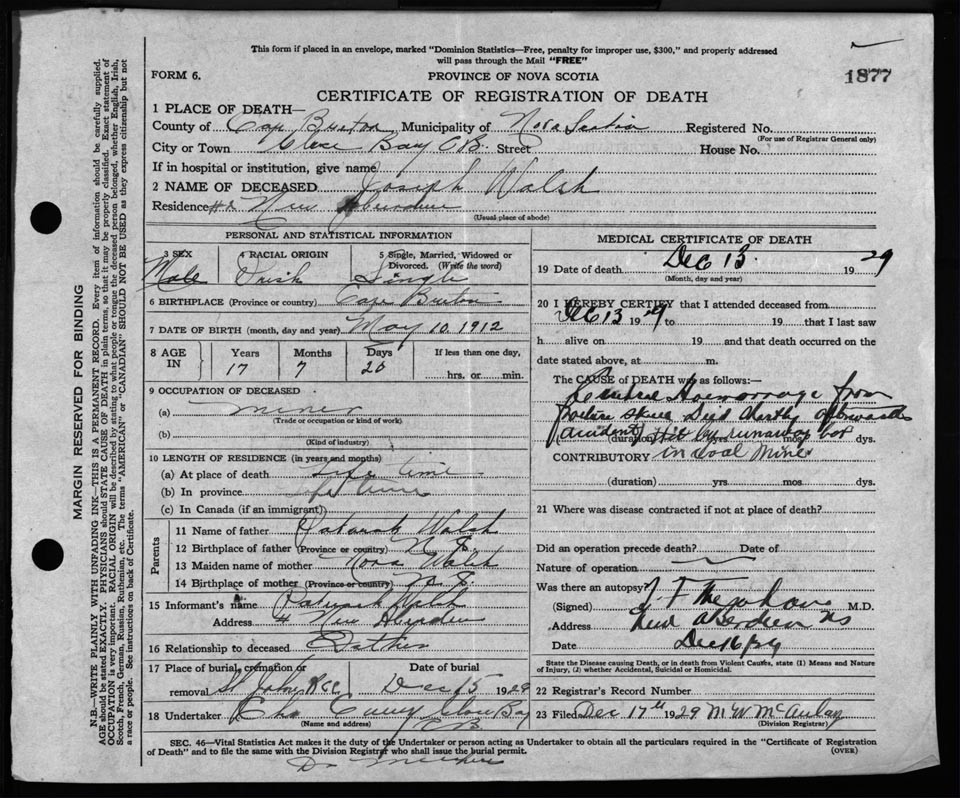 This form if placed in an envelope, marked "Dominion Statistics—Free, penalty for improper use, $300," and properly addressed
will pass through the Mail "FREE"
FORM 6. PROVINCE OF NOVA SCOTIA 1877
CERTIFICATE OF REGISTRATION OF DEATH
1 PLACE OF DEATH—
County of Cap Breton Municipality of Nova Scotia Registered No.
(For use of Registrar General only)
City or Town Glace Bay C B. Street House No.
If in hospital or institution, give name
2 NAME OF DECEASED Joseph Walsh
Residence New Aberdeen
(Usual place of abode)
PERSONAL AND STATISTICAL INFORMATION
3 SEX 4 RACIAL ORIGIN 5 Single, Married, Widowed or
Divorced. (Write the word)
Male Irish Single
6 BIRTHPLACE (Province or country) Cape Breton
7 DATE OF BIRTH (month, day and year) May 10. 1912
8 AGE IN Years Months Days If less than one day,
17 7 20
hrs. or min.
9 OCCUPATION OF DECEASED
(a) miner
(Trade or occupation or kind of work)
(b)
(Kind of industry)
10 LENGTH OF RESIDENCE (in years and months)
(a) At place of death Life time
(b) In province Life time
(c) In Canada (if an immigrant)
Parents
11 Name of father Walsh
12 Birthplace of father (Province or country)
13 Maiden name of mother Walsh
14 Birthplace of mother (Province or country)
15 Informant's name Walsh
Address 4 New Aberdeen
16 Relationship to deceased Father
17 Place of burial, cremation or Date of burial
removal St John Dec 15 1929
18 Undertaker Glace Bay
(Name and address) C B.
MEDICAL CERTIFICATE OF DEATH
19 Date of death Dec 13. 1929
(Month, day and year)
20 I HEREBY CERTIFY that I attended deceased from
Dec 13 1929 to 19 that I last saw
h alive on 19 and that death occurred on the
date stated above, at m.
The CAUSE of DEATH was as follows:—
Haemorrage from
Skull Died shortly afterwards
accident Hit by runaway box
(duration) yrs. mos. dys.
CONTRIBUTORY in Coal Mine
(duration) yrs. mos. dys.
21 Where was disease contracted if not at place of death?
Did an operation precede death? Date of
Nature of operation
Was there an autopsy?
(Signed) M.D.
Address New Aberdeen NS
Date Dec 16/29
State the Disease causing Death, or in death from Violent Causes, state (1) Means and Nature
of Injury, (2) whether Accidental, Suicidal or Homicidal.
22 Registrar's Record Number
23 Filed Dec 17th 1929 M W McAulay
(Division Registrar)
SEC. 46—Vital Statistics Act makes it the duty of the Undertaker or person acting as Undertaker to obtain all the particulars required in the "Certificate of Registration
of Death" and to file the same with the Division Registrar who shall issue the burial permit. (OVER)
MARGIN RESERVED FOR BINDING
N.B.—WRITE PLAINLY WITH UNFADING INK—THIS IS A PERMANENT RECORD. Every item of information should be carefully supplied.
AGE should be stated EXACTLY. PHYSICIANS should STATE CAUSE OF DEATH in plain terms, so that it may be properly classified. Exact statement of
OCCUPATION is very important. RACIAL ORIGIN will be described by stating to what people or tongue the deceased person belonged, whether English, Irish,
Scotch, French, German, Russian, Ruthenian, etc. The terms "AMERICAN" or "CANADIAN" SHOULD NOT BE USED as they express citizenship but not
a race or people. See instructions on back of Certificate.